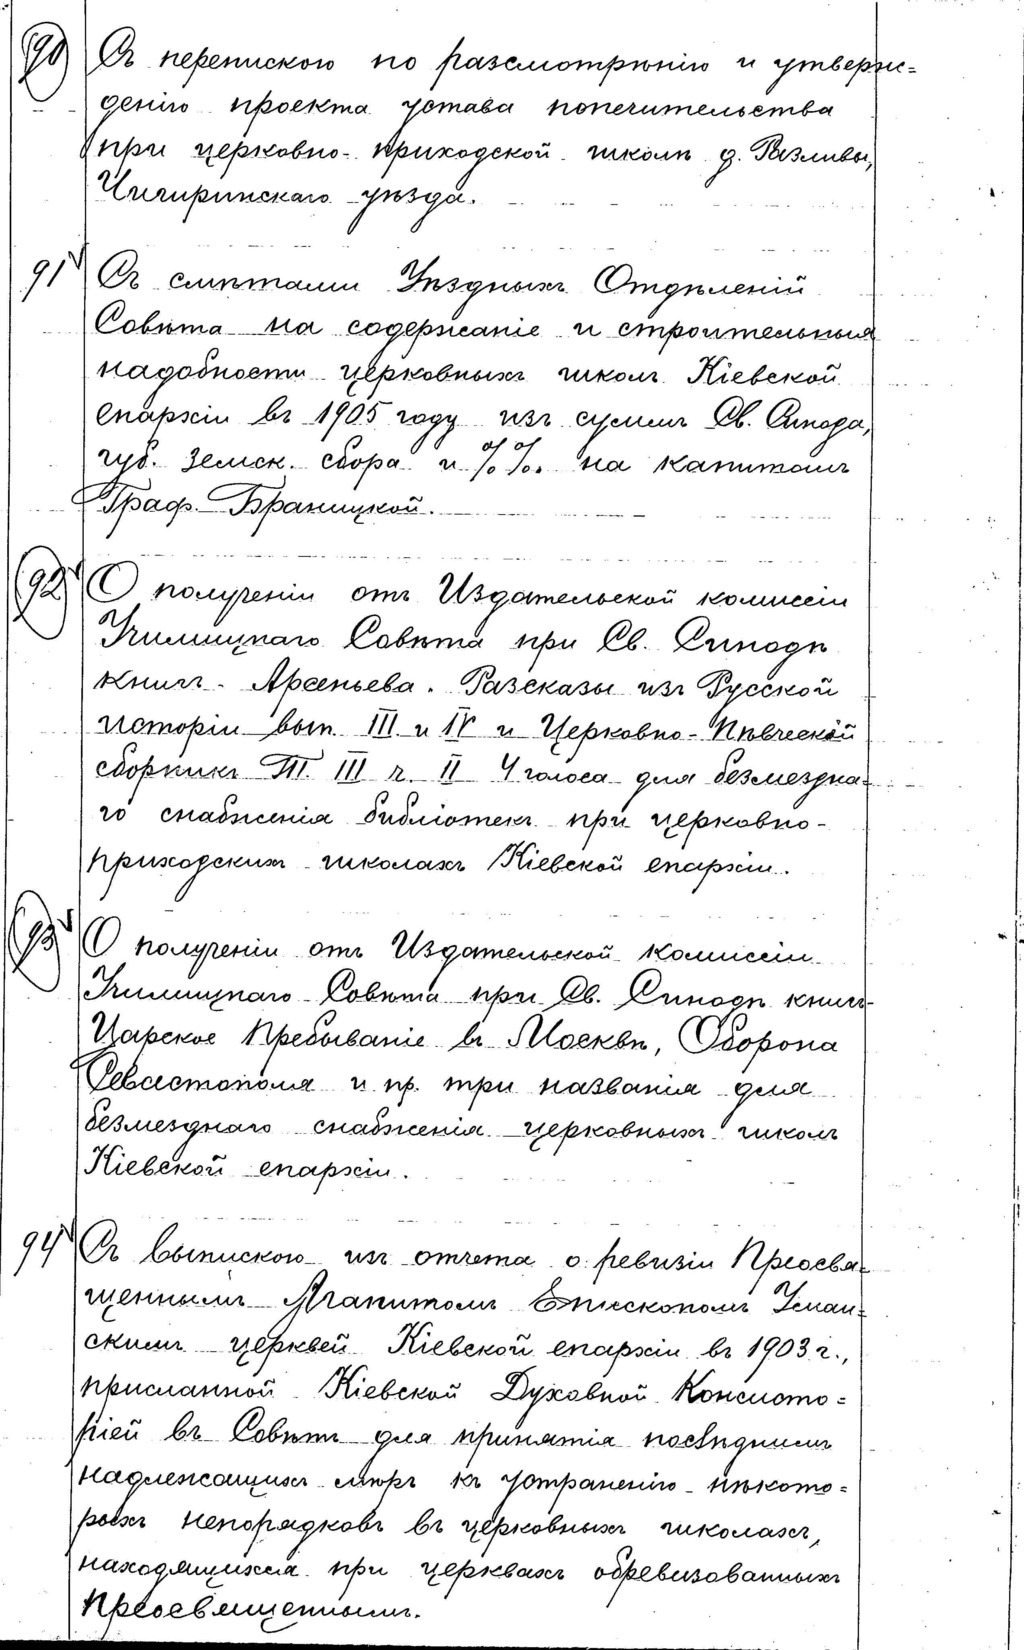 90 Съ перепискою по разсмотрѣнію и утверж=
денію проекта устава попечительства
при церковно-приходской школѣ д. Разливы,
Чигиринскаго уѣзда.
91 Съ смѣтами Уѣздныхъ Отдѣленій
Совѣта на содержаніе и строительныя
надобности церковныхъ школъ Кіевской
епархіи въ 1905 году изъ суммъ Св. Синода,
губ. земск. сбора и %%. на капиталъ
Граф. Браницкой.
92 О полученіи отъ Издательской комиссіи
Училищнаго Совѣта при Св. Синодѣ
книгъ - Арсеньева. Разсказы изъ Русской
исторіи вып. III и IV и Церковно-Пѣвческій
сборникъ Т. III ч. II 4 голоса для безмездна=
го снабженія библіотекъ при церковно-
приходскихъ школахъ Кіевской епархіи.
93 О полученіи отъ Издательской комиссіи
Училищнаго Совѣта при Св. Синодѣ книгъ-
Царское Пребываніе въ Москвѣ, Оборона
Севастополя и пр. три названія для
безмезднаго снабженія церковныхъ школъ
Кіевской епархіи.
94 Съ выпискою изъ отчета о ревизіи Преосвя=
щеннымъ Агапитомъ Епископомъ Уман=
скимъ церквей Кіевской епархіи въ 1903 г.,
присланной Кіевской Духовной Консисто=
ріей въ Совѣтъ для принятія послѣднимъ
надлежащихъ мѣръ къ устраненію нѣкото=
рыхъ непорядковъ въ церковныхъ школахъ,
находящихся при церквахъ обревизованныхъ
Преосвященнымъ.